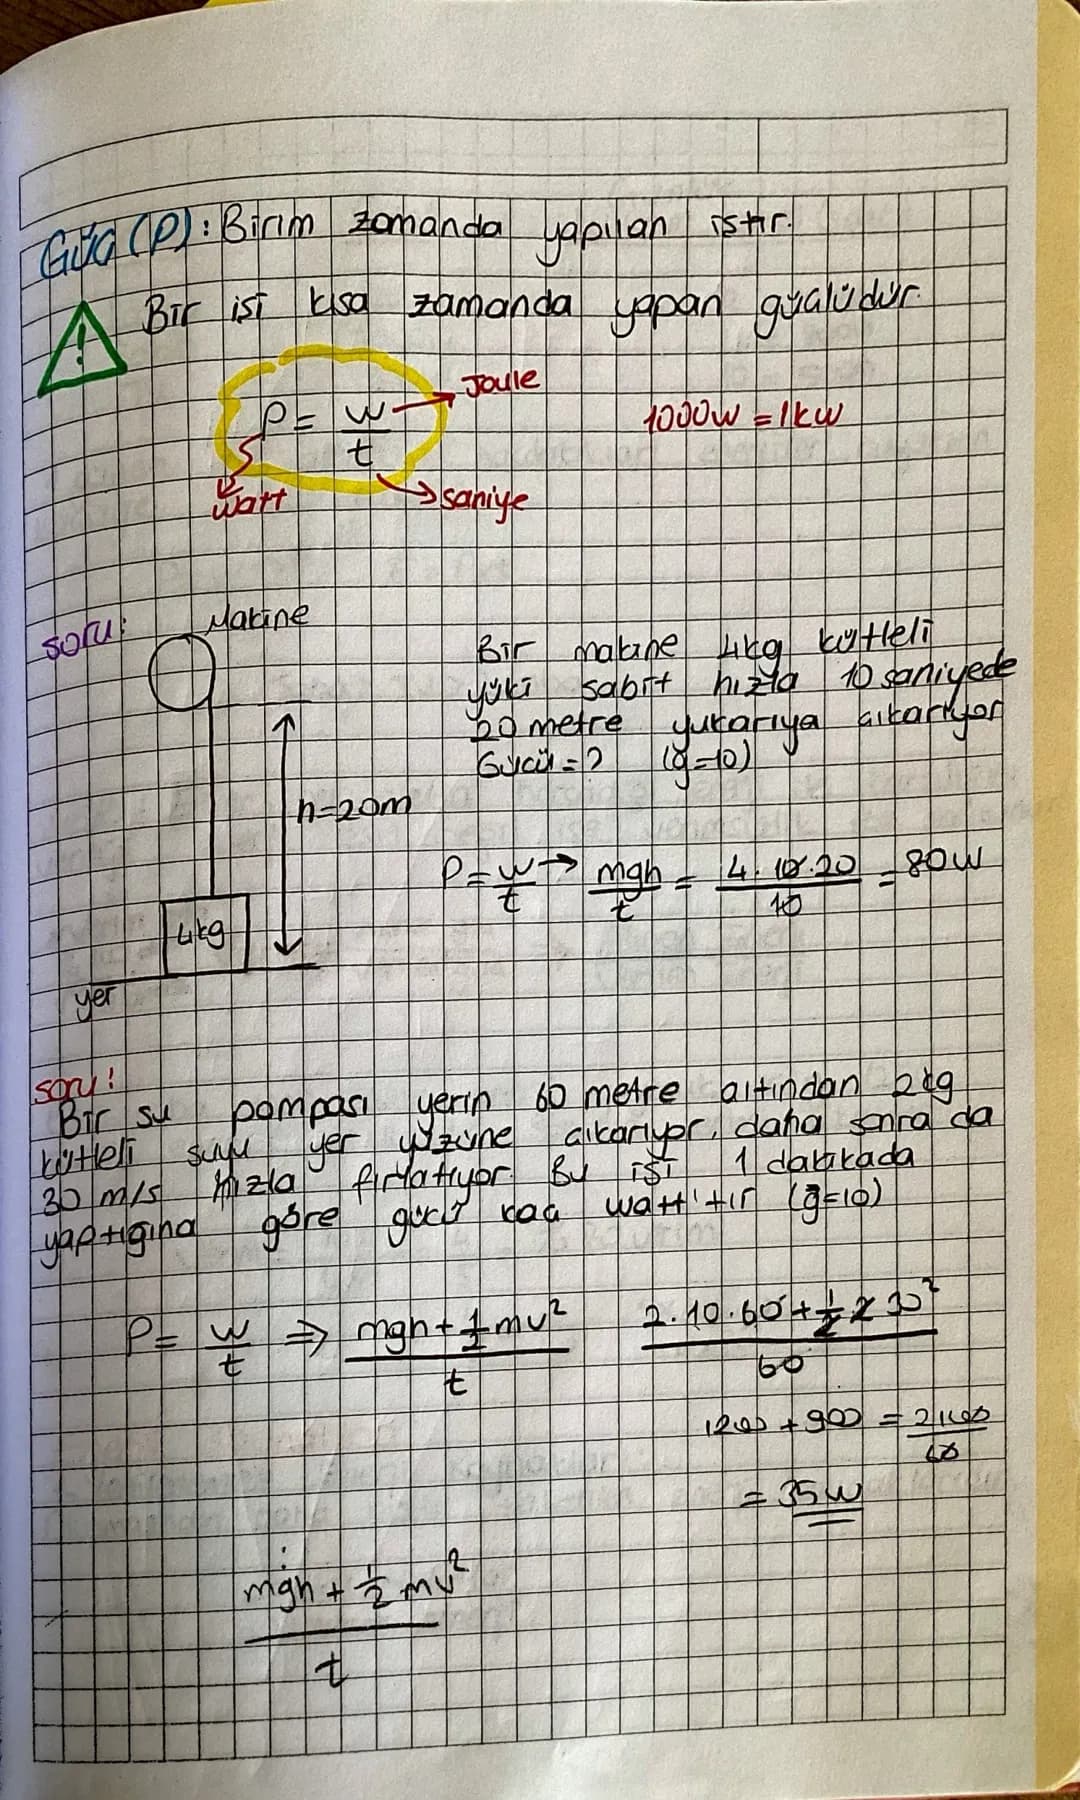 Güç (P): Birim zamanda yapılan iştir.
Bir işi kısa zamanda yapan güçlüdür.
!
P = W/t
Joule
Watt
saniye
1000W = 1kW
Soru:
Makine
h=20m
4kg
yer
Bir makine 4kg kütleli
yükü sabit hızla 10 saniyede
20 metre yukarıya çıkarıyor
Gücü = ? (g=10)
P = W/t → mgh/t = 4.10.20/10 = 80W
soru!
Bir su pompası yerin 60 metre altından 2kg
kütleli suyu yer yüzüne çıkarıyor, daha sonra da
30 m/s hızla fırlatıyor. Bu işi 1 dakikada
yaptığına göre gücü kaç watt'tır (g=10)
P = W/t ⇒ mgh + 1/2 mv²/t
2.10.60 + 1/2 2 30²/60
1200 + 900 = 2100/60
= 35W
mgh + 1/2 mv²
t